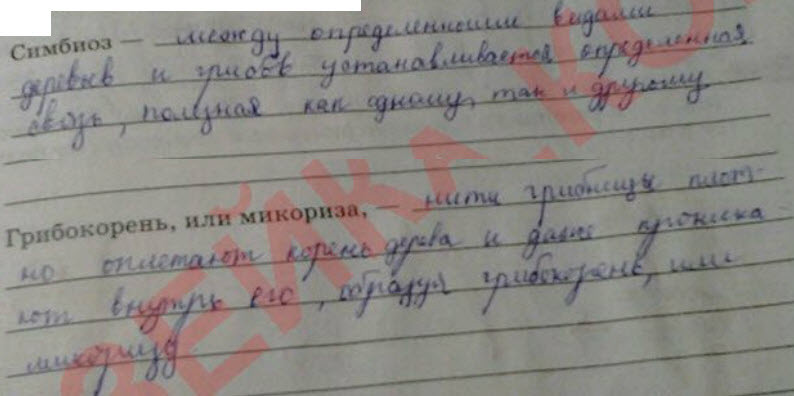 Симбиоз — между определенными видами
деревьев и грибов устанавливается определенная
связь, полезная как одному, так и другому
Грибокорень, или микориза, — нити грибницы плот-
но оплетают корень дерева и даже проника-
ют внутрь его, образуя грибокорень, или
микоризу.